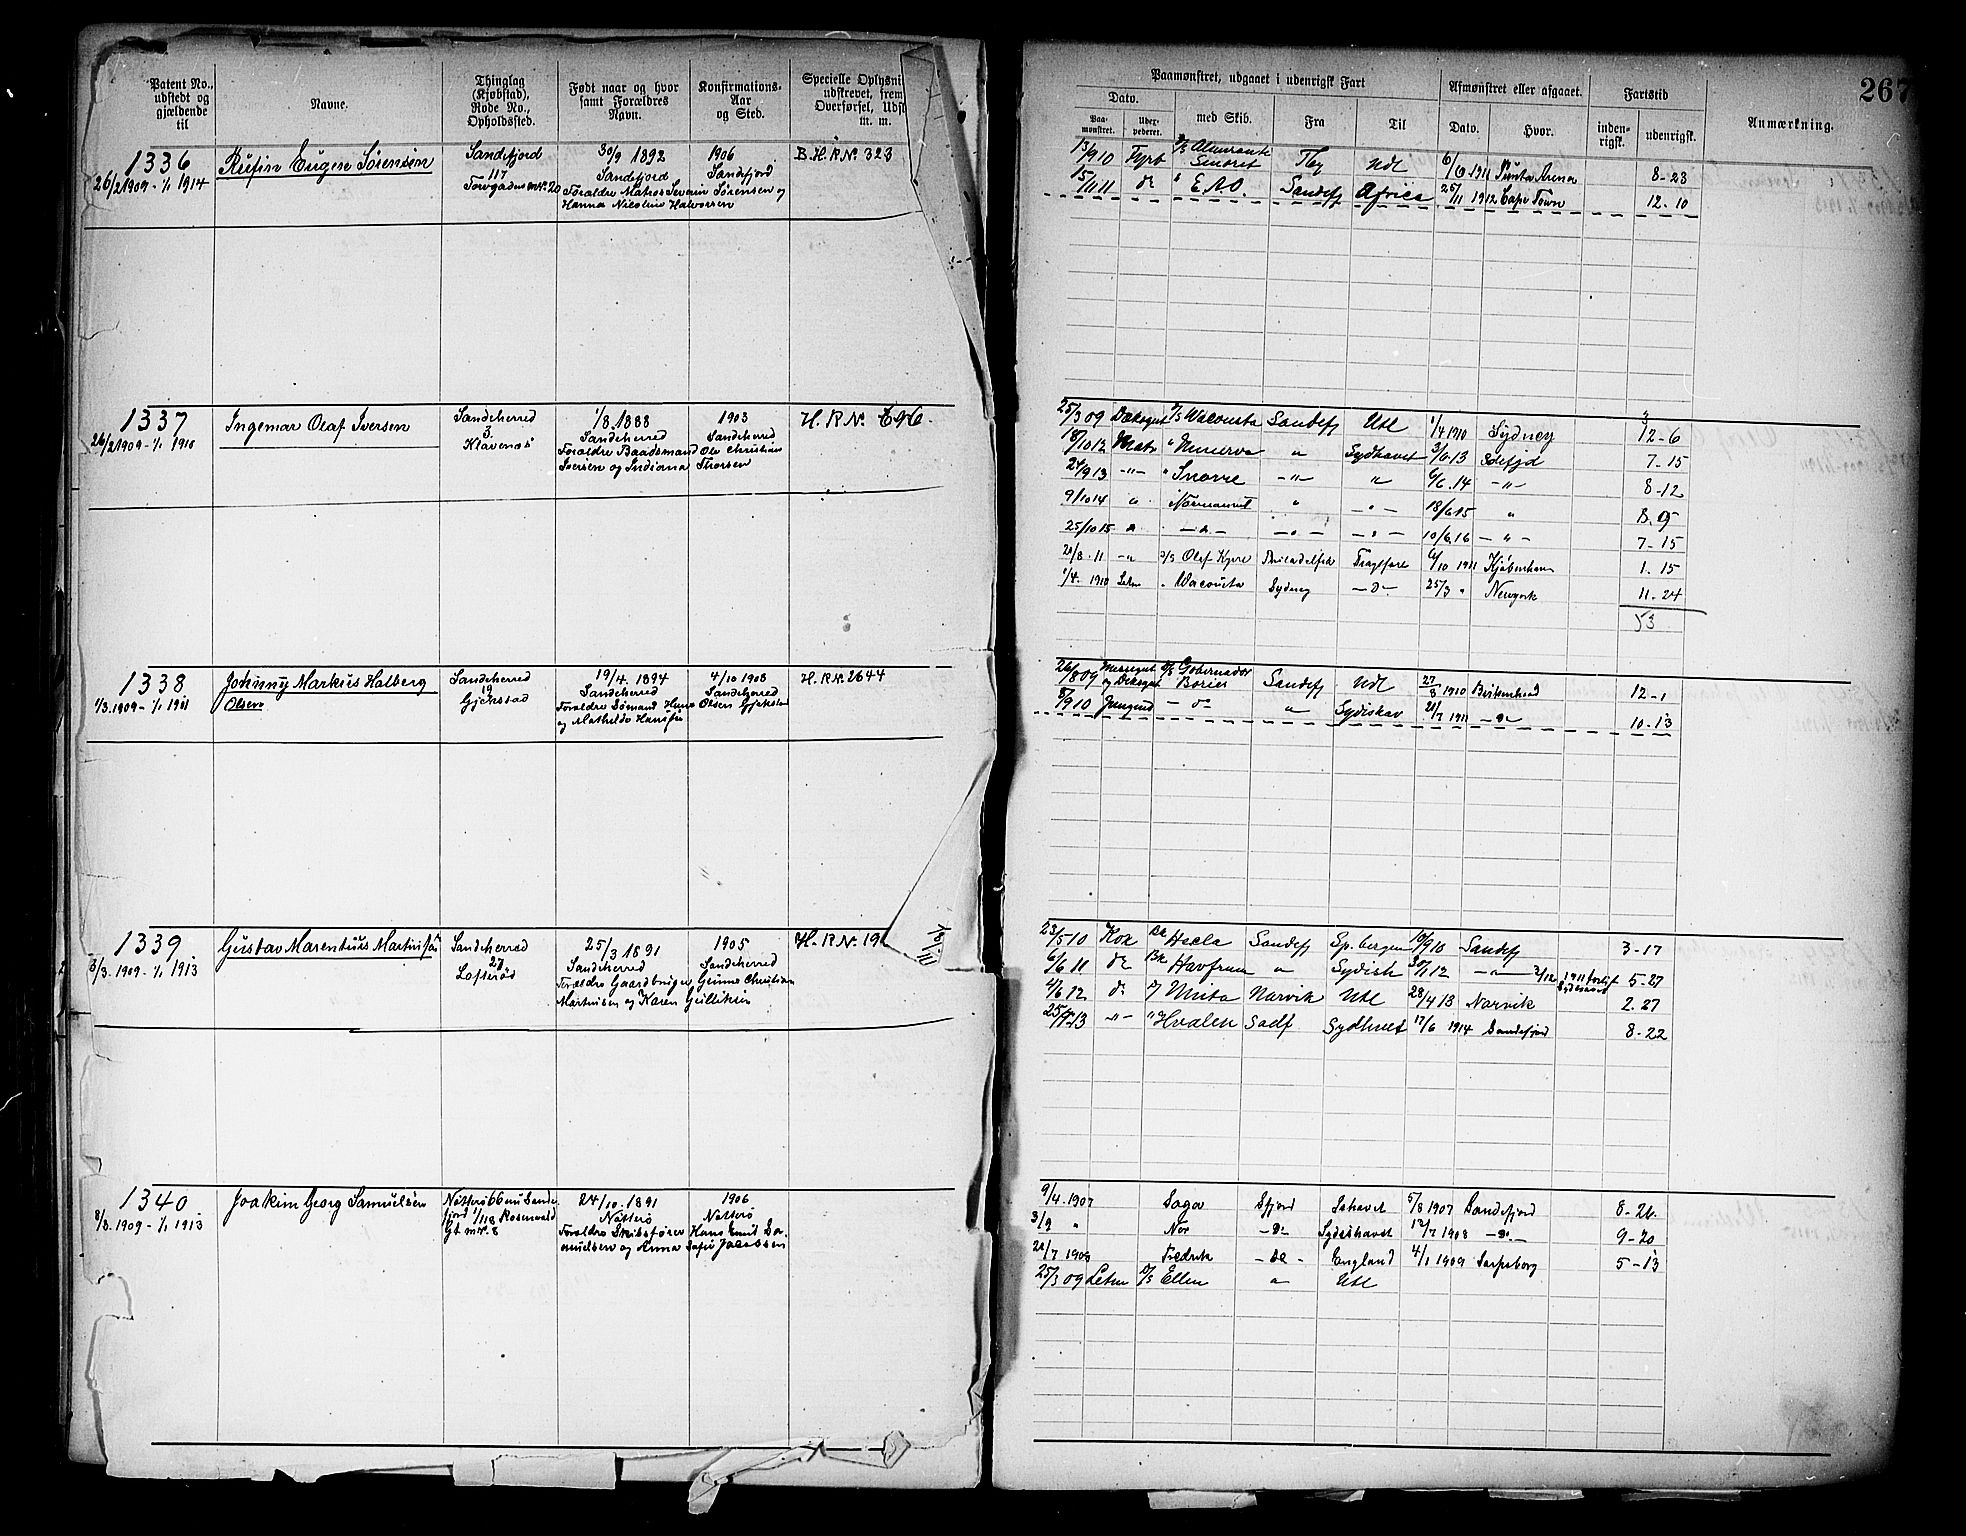 267
Patent No., udstedt og gjældende til
Navne.
Thinglag (Kjøbstad), Rode No., Opholdssted.
Født naar og hvor samt Forældres Navn.
Konfirmations- Aar og Sted.
Specielle Oplysni
udskrevet, frem
Overførsel, Udst
m. m.
Paamønstret, udgaaet i udenrigsk Fart
Dato.
Paa- mønstret.
Uder- pederet.
med Skib.
Fra
Til
Afmønstret eller afgaaet.
Dato.
Hvor.
Fartstid
inden- rigsk.
udenrigsk.
Anmærkning.
1336
26/2 1909 - 1/1 1914
Rufin Eugen Sørensen
Sandefjord
117
30/9 1892
Sandefjord
Forældre Mathor Severin Sørensen og
Hanna Nicoline Halvorsen
1906
Sandefjord
B.H.R.No. 323
13/9 10 Fyrb Almirante Tby Udl 6/6 1911 Punta Arena 8-23
15/11 11 do " E.A.O. Sandefj Africa 25/11 1912 Cape Town 12-10
1337
26/2 1909 - 1/1 1910
Ingemar Olaf Iversen
Sandeherred
3
Klavenæs
1/8.1888
Sandeherred
Forældre Baadsmand Ole Christian
Iversen og Indiana Thorsen
1903
Sandeherred
H.R.No.
25/3 09 Dæksgut Wacousta Sandefj Utl 1/4 1910 Sydney 12-6
18/10 12 Matr " Minerva " Sydhavet 3/6 13 Sdefjd 7-15
24/9 13 -"- " Snorre -"- " 6/6.14 -"- 8-12
9/10 14 " " -"- 18/6 15 "
25/10 15 " -"- -"- -"- 10/6.16 -"- 7-15
21/8.11 -" Olaf Kyrre Philadelfia 6/10 1911 Kjøbenhavn 1.15
1/4.1910 " Wacousta Sydney -d- 25/3 " Newyork 11-24
53
1338
1/3.1909 - 1/1 1911
Johnny Markus Halberg
Olsen
Sandeherred
19
Gjekstad
19/4.1894
Sandeherred
Forældre Sømand Hans Olsen Gjekstad
og Mathilde Hansen
4/10 1908
Sandeherred
H.R.No. 2644
26/8 09 Messegut og Dæksgut Gobernador Bories Sandefj Udl 27/8 1910 Birkenhead 12-1
8/9 10 Jungmd - d " Sydishav 21/7 1911 -"- 10-13
1339
8/3.1909 - 1/1 1913
Gustav Marentius Martinsen
Sandeherred
27
Lofterød
25/3 1891
Sandeherred
Forældre Gaardbruger Gunno Christian
Martinsen og Karen Gulliksen
1905
Sandeherred
H.R.No. 19
23/5 10 Kok Hecla Sandefj Sp.bergen 18/9 10 Sandefj 3-17
6/6 11 do Havfruen " Sydish 30/1 12 5-27
4/6 12 do Unita Narvik Utl 28/4 13 Narvik 2.27
-"- " Hvalen Sadf Sydhavet 17/6 1914 Sandefjord 8-22
1340
8/3.1909 - 1/1 1913
Joakim Georg Samuelsen
Nøtterø 66 nu Sande-
fjord 1/118 Rosenvald
Gt nr. 8
24/10.1891
Nøtterø
Forældre Skibsfører Hans Emil Sa-
muelsen og Anna Sofie Jacobsen
1906
Nøtterø
9/4.1907 Saga Sfjord Ishavet 5/8 1907 Sandefjord 8-26
3/9 " Nor -Do- Sydishavet 12/7 1908 -Do- 9-20
21/7 1908 Fredrik -do- England 4/1 1909 Sarpsborg 5-13
25/3 09 Letm Ellen " Utl